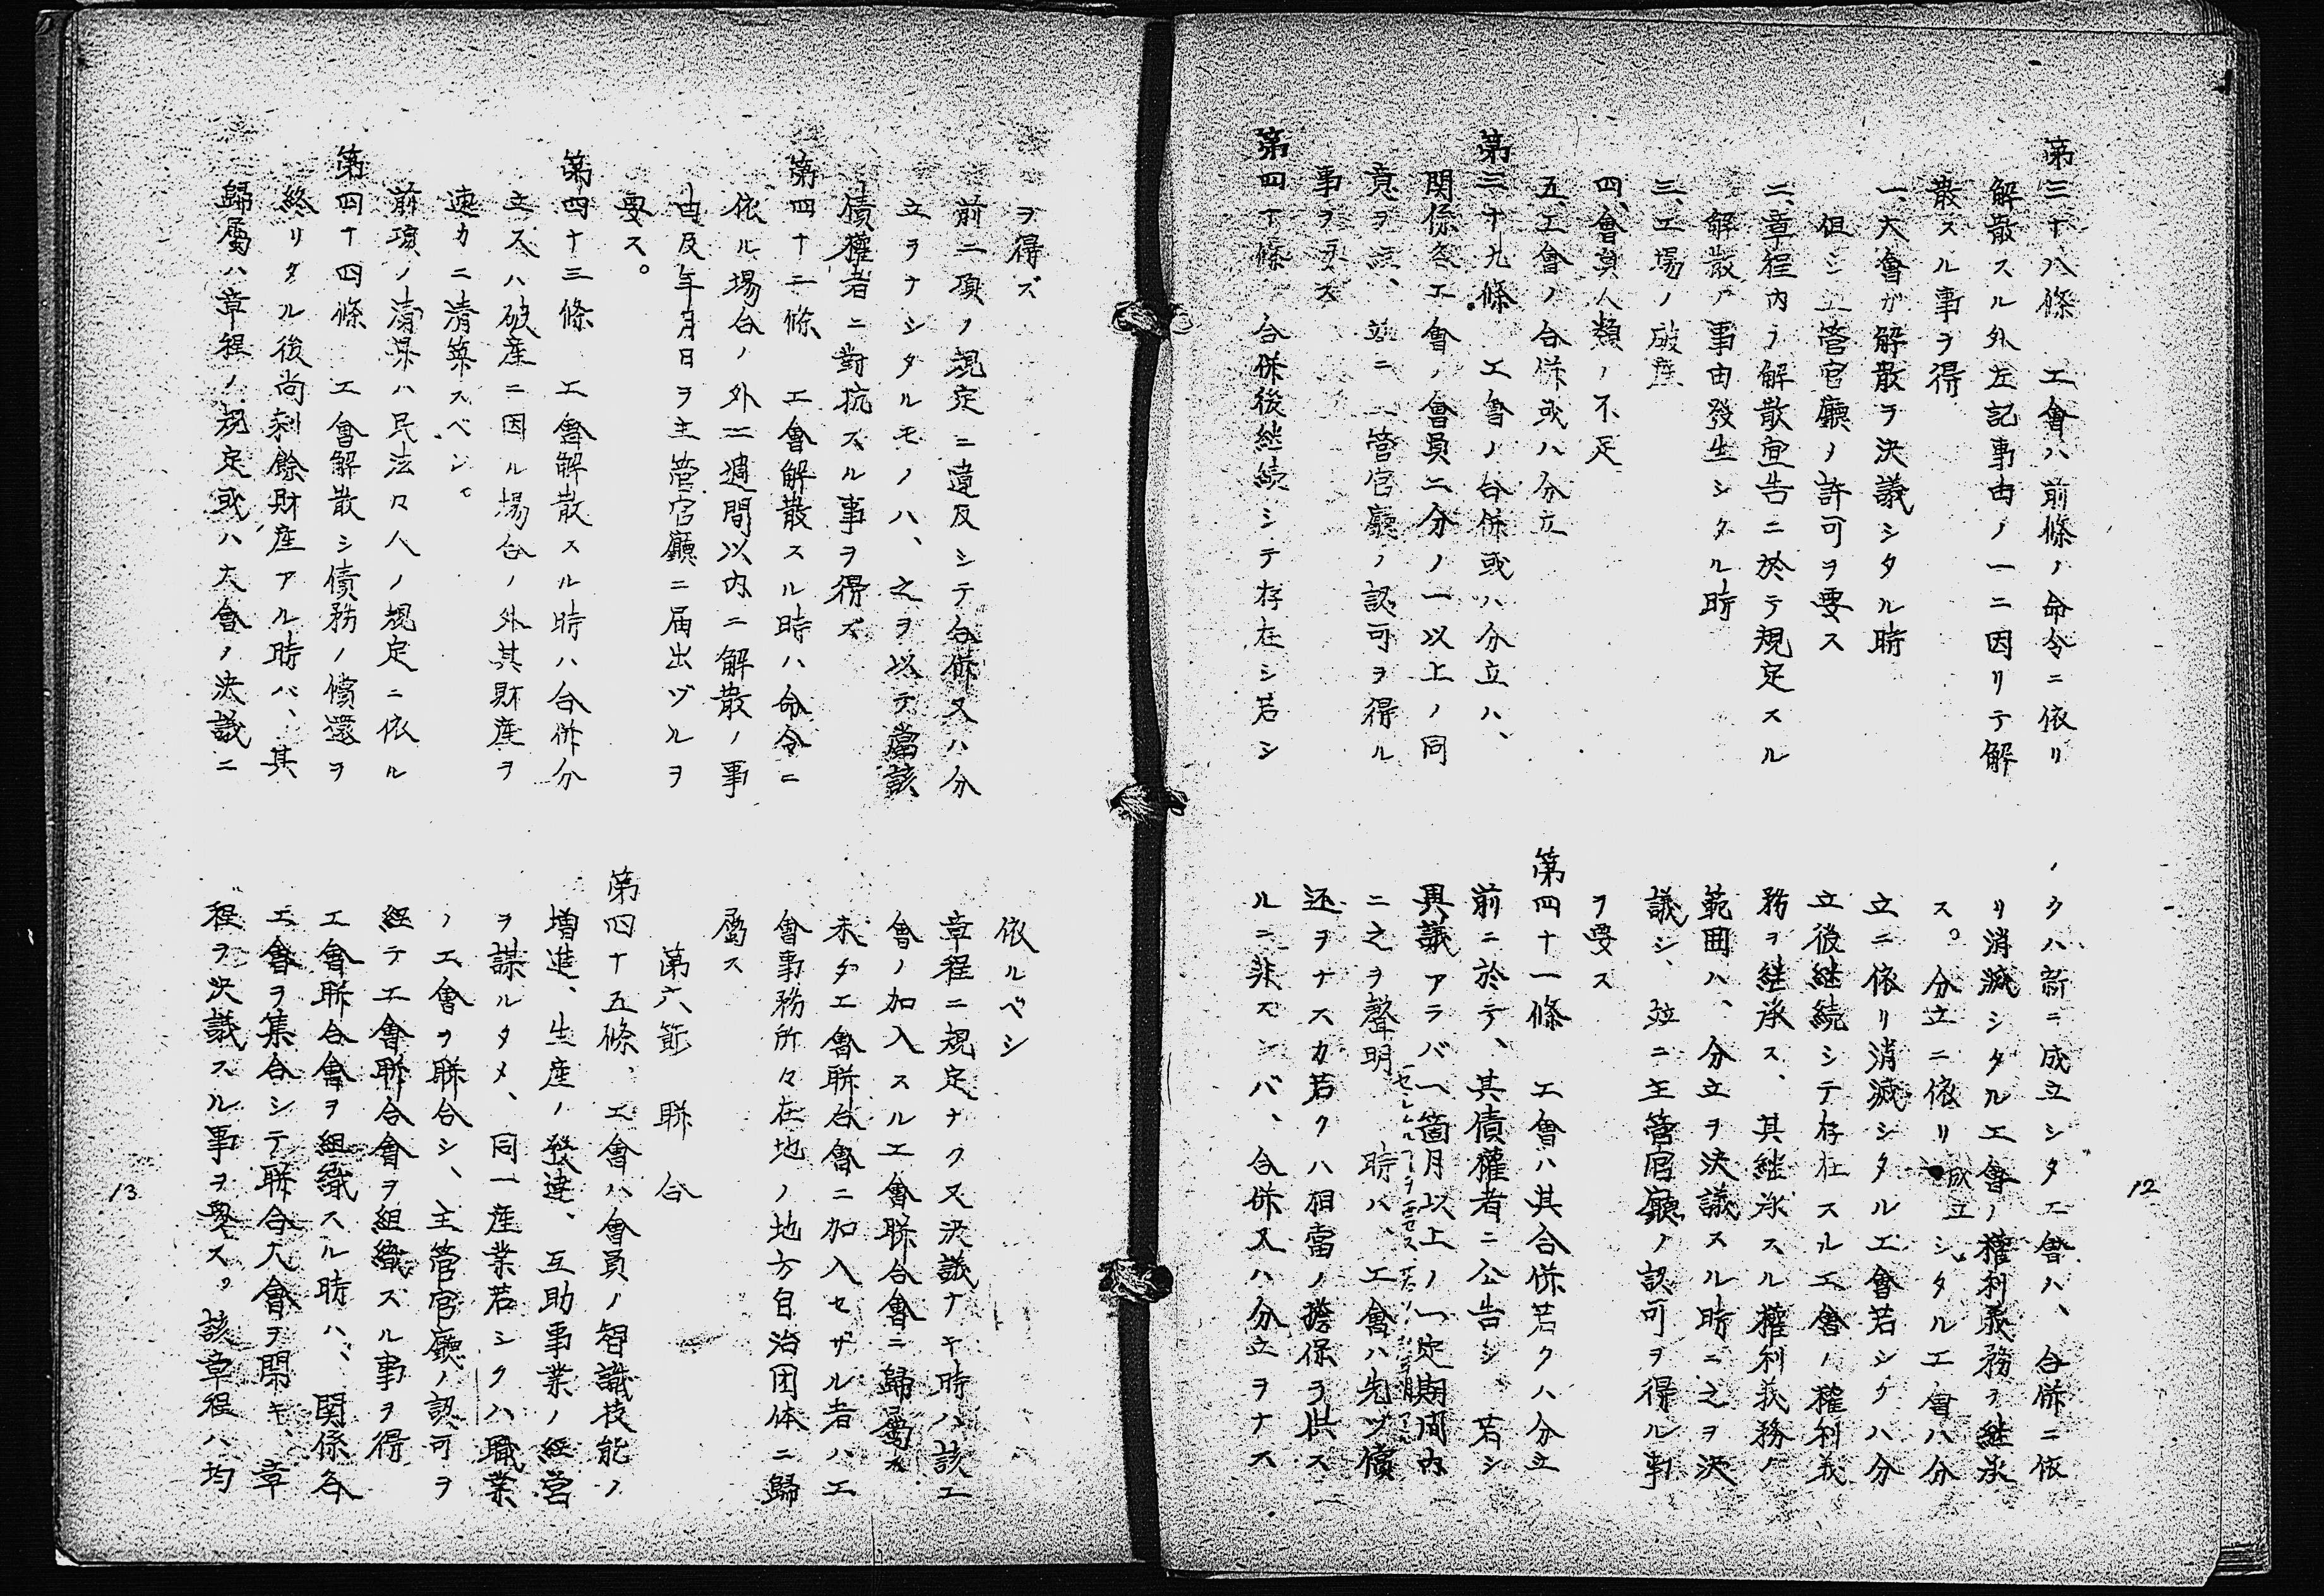 12
第三十八條　工會ハ前條ノ命令ニ依リ
解散スル外左記事由ノ一ニ因リテ解
散スル事ヲ得
一、大會ガ解散ヲ決議シタル時
但シ主管官廳ノ許可ヲ要ス
二、章程内ノ解散宣告ニ於テ規定スル
解散ノ事由發生シタル時
三、工場ノ破産
四、會員人類ノ不足
五工會ノ合併或ハ分立
第三十九條　工會ノ合併或ハ分立ハ、
関係各工會ノ會員二分ノ一以上ノ同
意ヲ　、並ニ　管官廳ノ認可ヲ得ル
事ヲ要ス
第四十條　合併後継続シテ存在シ若シ
クハ新ニ成立シタ工會ハ、合併ニ依
リ消滅シタル工會ノ權利義務ヲ継承
ス。分立ニ依リ成立シタル工會ハ分
立ニ依リ消滅シタル工會若シクハ分
立後継続シテ存在スル工會ノ權利義
務ヲ継承ス、其継承スル權利義務ノ
範囲ハ、分立ヲ決議スル時ニ之ヲ決
議シ、並ニ主管官廳ノ認可ヲ得ル事
ヲ要ス
第四十一條　工會ハ其合併若クハ分立
前ニ於テ、其債權者ニ公告シ、若シ
異議アラバ一箇月以上ノ一定期間内
ニ之ヲ聲明　時ハ、工會ハ先ヅ償
还ヲナスカ若クハ相當ノ擔保ヲ供ス
ルニ非ズンバ、合併又ハ分立ヲナス
ヲ得ズ
前二項ノ規定ニ違反シテ合併又ハ分
立ヲナシタルモノハ、之ヲ以テ當該
債權者ニ對抗スル事ヲ得ズ
第四十二條　工會解散スル時ハ命令ニ
依ル場合ノ外二週間以内ニ解散ノ事
由及年月日ヲ主管官廳ニ届出ヅルヲ
要ス。
第四十三條　工會解散スル時ハ合併分
立又ハ破産ニ因ル場合ノ外其財産ヲ
速カニ清算スベシ。
前項ノ清算ハ民法々人ノ規定ニ依ル
第四十四條　工會解散シ債務ノ償還ヲ
終リタル後尚剰餘財産アル時ハ、其
歸屬ハ章程ノ規定或ハ大會ノ決議ニ
依ルベシ
章程ニ規定ナク又決議ナキ時ハ該工
會ノ加入スル工會聯合會ニ歸屬ス
未ダ工會聯合會ニ加入セザル者ハ工
會事務所々在地ノ地方自治団体ニ歸
屬ス
第六節　聯合
第四十五條、工會ハ會員ノ智識技能ノ
増進、生産ノ發達、互助事業ノ経営
ヲ謀ルタメ、同一産業若シクハ職業
ノ工會ヲ聯合シ、主管官廳ノ認可ヲ
経テ工會聯合會ヲ組織スル事ヲ得
工會聯合會ヲ組織スル時ハ、関係各
工會ヲ集合シテ聯合大會ヲ開キ、章
程ヲ決議スル事ヲ要ス。該章程ハ均
13